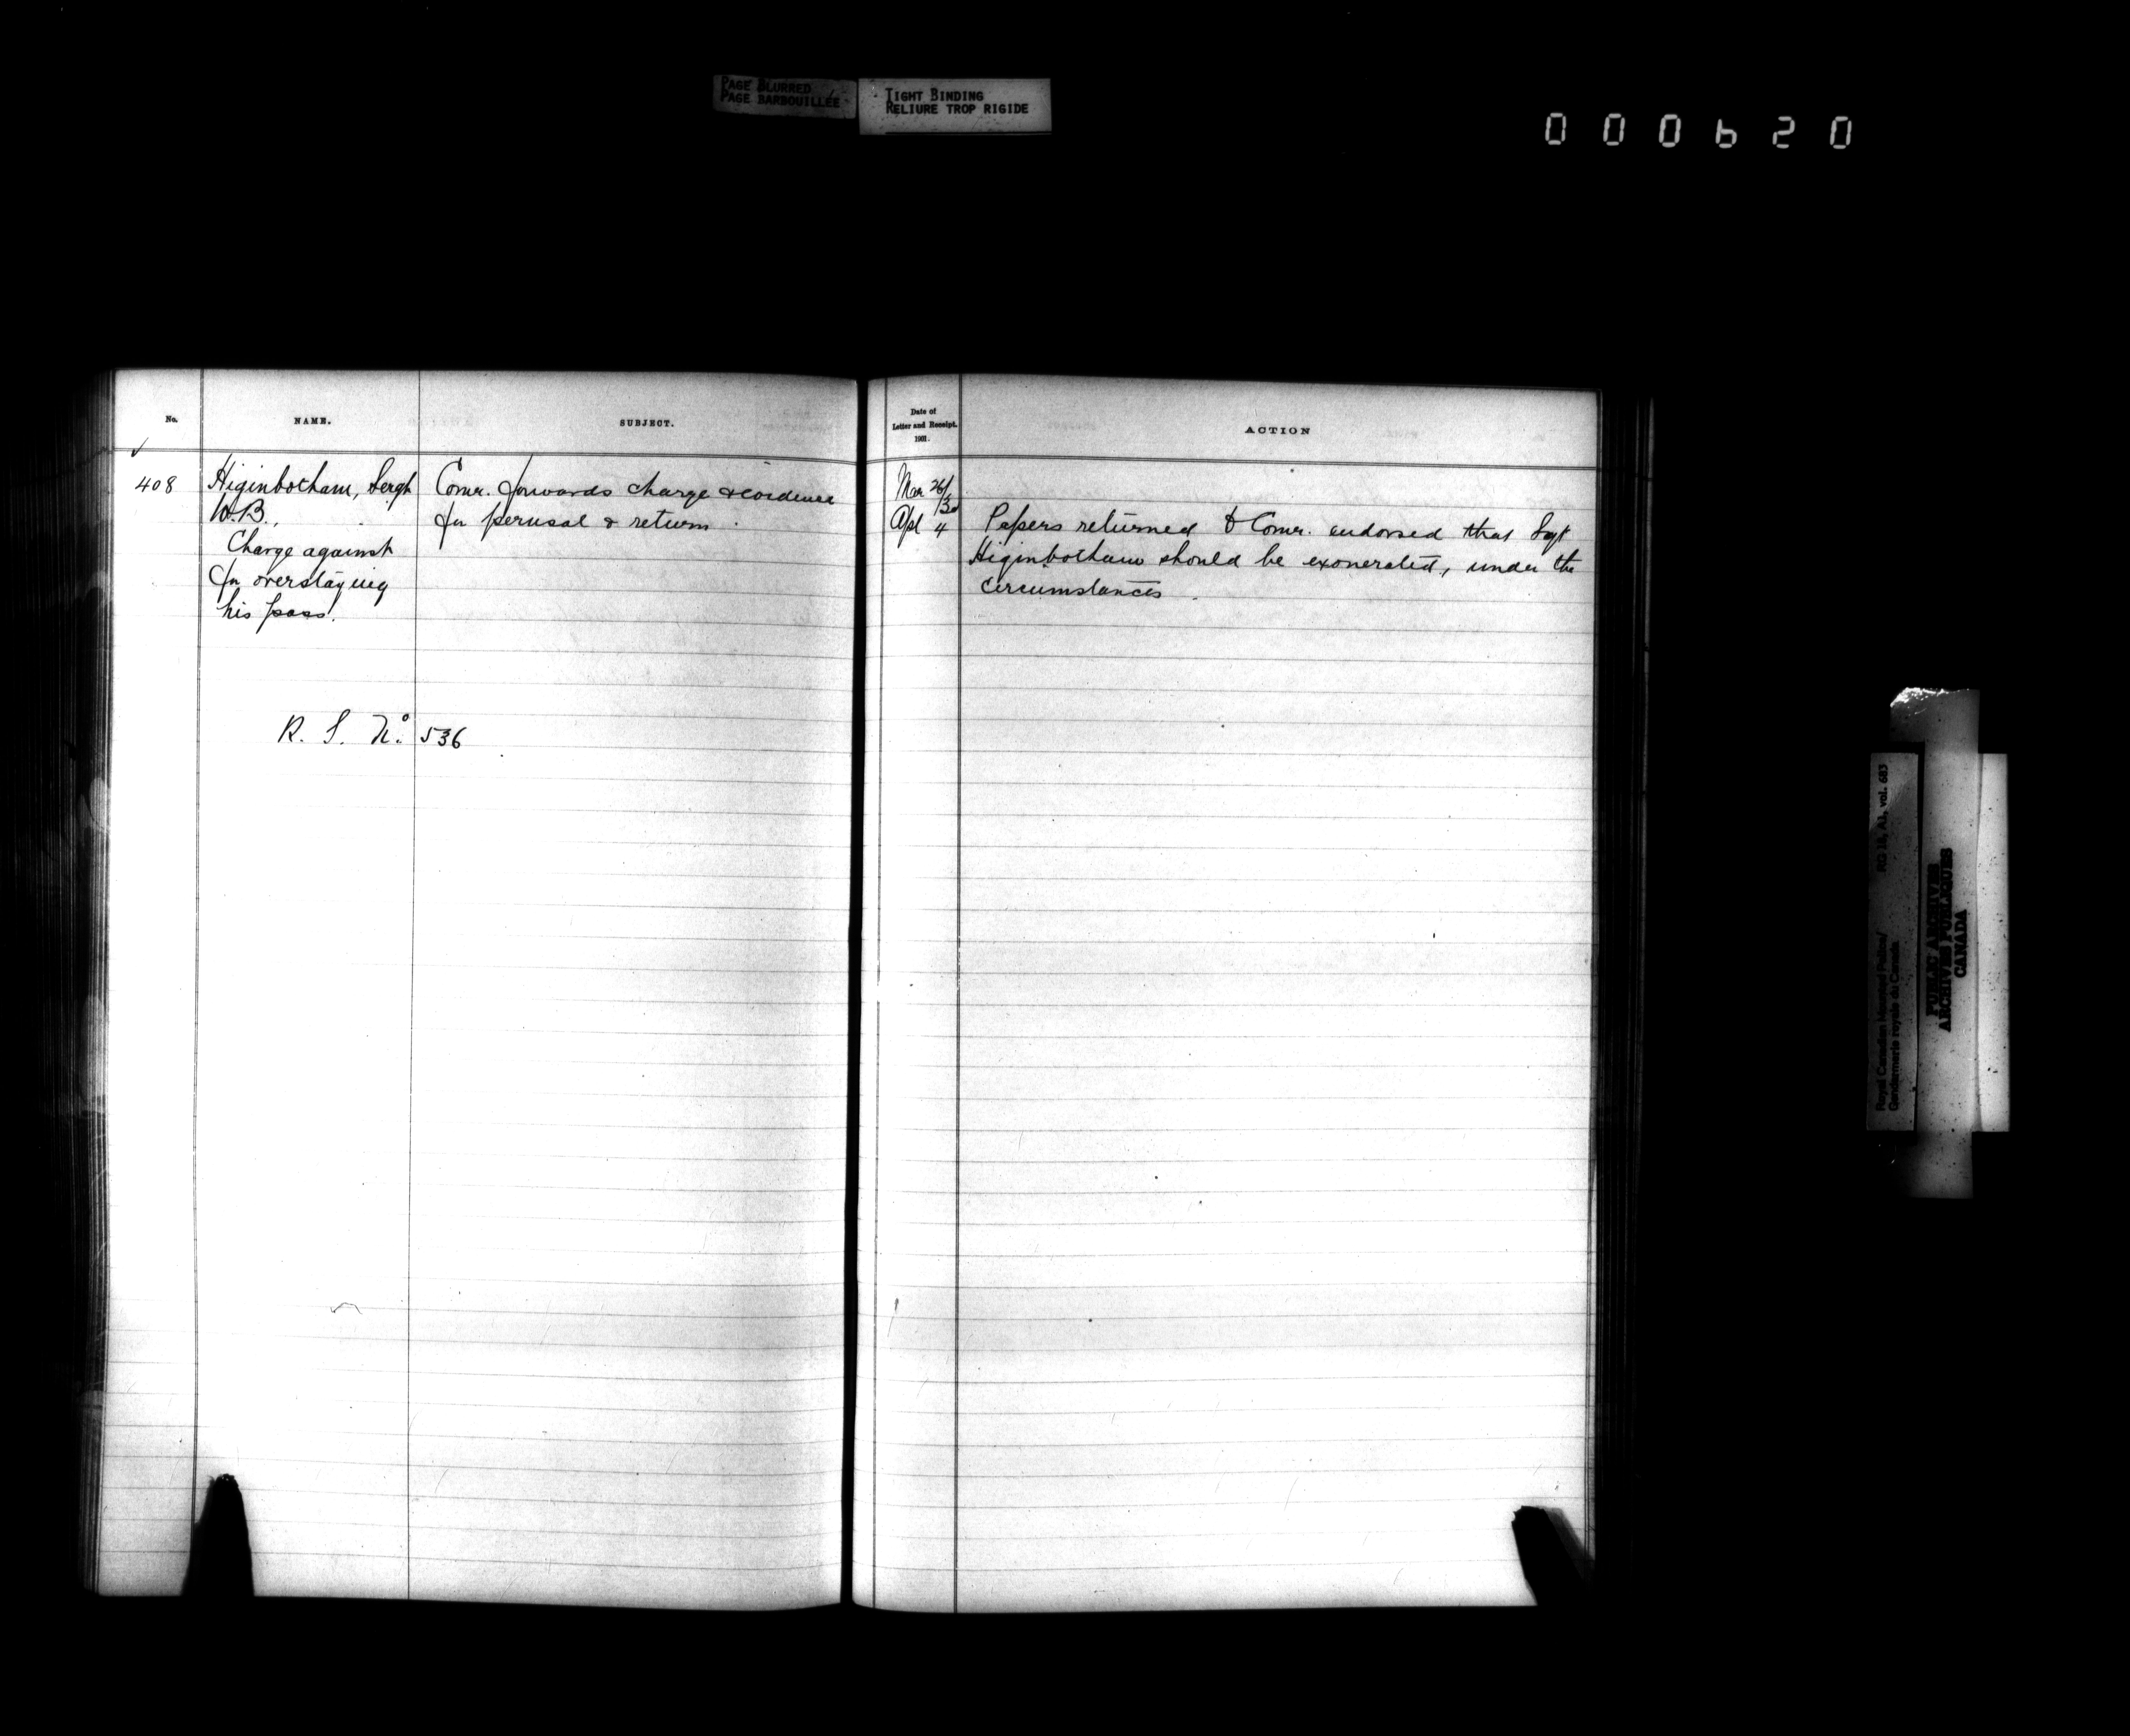 PAGE BLURRED
PAGE BARBOUILLÉE
TIGHT BINDING
RELIURE TROP RIGIDE
000620
No.
NAME.
SUBJECT.
408
Higinbotham, Sergt
W.B.,
Charge against
for overstaying
his pass.
Comr. forwards charge & evidence
for perusal & return.
R. S. No. 536
Date of
Letter and Receipt.
1901.
ACTION
Mar 26/30
Apl 4
Papers returned to Comr. endorsed that Sgt
Higinbotham should be exonerated, under the
circumstances.
Royal Canadian Mounted Police/
Gendarmerie royale du Canada
RG 18, A1, vol. 683
PUBLIC ARCHIVES
ARCHIVES PUBLIQUES
CANADA